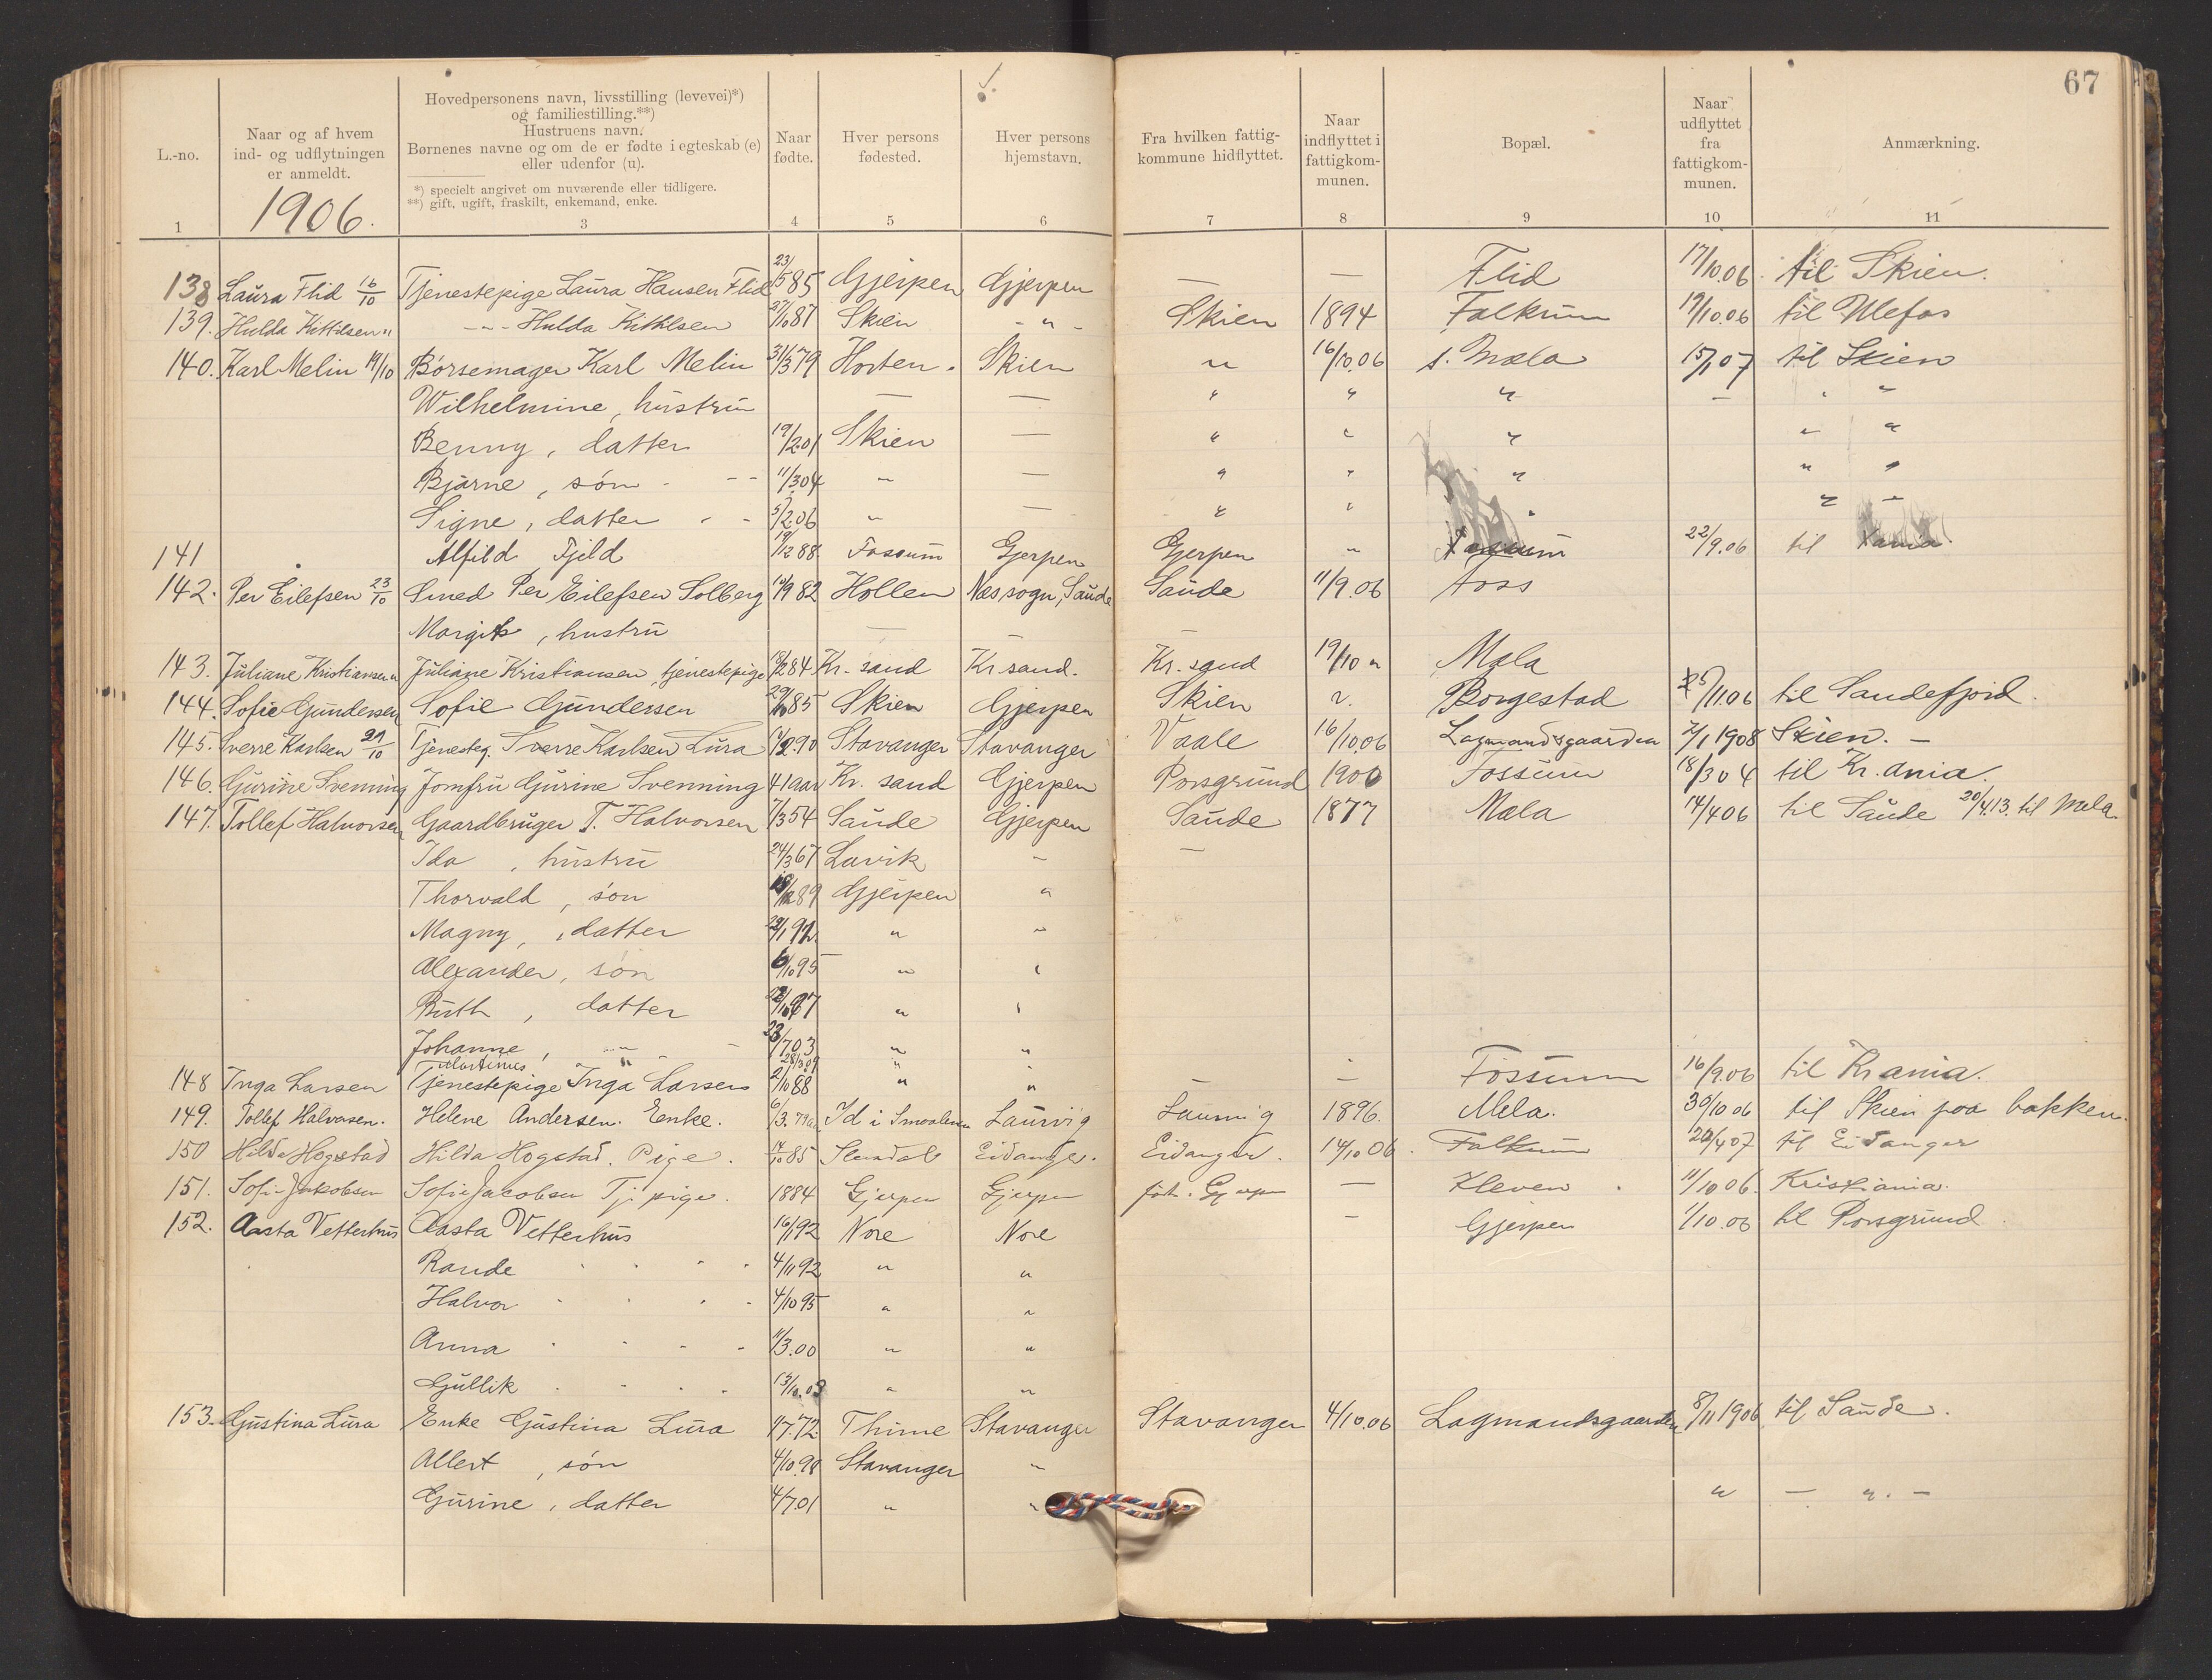 67
L.-no.
Naar og af hvem ind- og udflytningen er anmeldt.
Hovedpersonens navn, livsstilling (levevei)*) og familiestilling.**) Hustruens navn. Børnenes navne og om de er fødte i egteskab (e) eller udenfor (u).
*) specielt angivet om nuværende eller tidligere.
**) gift, ugift, fraskilt, enkemand, enke.
Naar fødte.
Hver persons fødested.
Hver persons hjemstavn.
Fra hvilken fattigkommune hidflyttet.
Naar indflyttet i fattigkommunen.
Bopæl.
Naar udflyttet fra fattigkommunen.
Anmærkning.
1906.
1 3 4 5 6 7 8 9 10 11
138 Laura Flid 16/10 Tjenestepige Laura Hansen Flid 23/5 85 Gjerpen Gjerpen — — Flid 17/10.06 til Skien.
139. Hulda Kittilsen " -"- Hulda Kittilsen 27/10 87 Skien - " - Skien 1894 Falkum 19/10.06 til Ulefos
140. Karl Melin 19/10 Børsemager Karl Melin 31/3 79 Horten. Skien " 16/10.06 s. Mæla 15/1 07 til Skien
Wilhelmine, hustru — — " " " — " "
Benny, datter 19/2.01 Skien — " " " " "
Bjarne, søn 11/3 04 " — " " " " "
Signe, datter 5/2.06 " — " " " " "
141 Alfild Fjeld 19/12 88. Fossum Gjerpen Gjerpen " Fossum 22/9.06 til Kania
142. Per Eilefsen 23/10 Smed Per Eilefsen Solberg 14/9 82 Hollen Næs sogn, Saude Saude 11/9.06 Aoss
Margit, hustru — —
143. Juliane Kristiansen " Juliane Kristiansen, tjenestepige 18/2 84 Kr. sand Kr. sand. Kr. sand 19/10 " Mæla
144. Sofie Gundersen Sofie Gundersen 29/10 85 Skien Gjerpen Skien " Borgestad 25/11.06 til Sandefjord.
145. Sverre Karlsen 21/10 Tjenesteg. Sverre Karlsen Lura 14/2.90 Stavanger Stavanger Vaale 16/10.06 Lagmandsgaarden 2/1 1908 Skien. —
146. Gurine Svenning Jomfru Gurine Svenning 41 aar Kr. sand Gjerpen Porsgrund 1900 Fossum 18/3 04 til Kr.ania.
147. Tollef Halvorsen Gaardbruger T. Halvorsen 7/3 54 Saude Gjerpen Saude 1877 Mæla 14/4 06 til Saude 20/4.13. til Mela.
Ida, hustru 24/3 67 Larvik — —
Thorvald, søn 18/12 89 Gjerpen "
Magny, datter 22/1 92. " "
Alexander, søn 6/10 95 " "
Ruth, datter 22/10 97 " "
Johanne, -"- 23/7 03 " "
Martinus " 28/3 09 " "
148 Inga Larsen Tjenestepige Inga Larsen 2/10 88 " " — — Fossum 16/9.06 til Kr.ania.
149. Tollef Halvorsen. Helene Andersen. Enke. 6/3. Id i Smaalenene Laurvig Laurvig 1896. Mela. 30/10 06 til Skien paa bakken.
150 Hilda Hogstad Hilda Hogstad. Pige. 14/10 85 Slemdal Eidanger. Eidanger. 14/10 06. Falkum 20/4 07 til Eidanger
151. Sofie Jakobsen Sofie Jacobsen Tj. pige. 1884 Gjerpen Gjerpen født i Gjerpen — Kleven. 11/10 06. Kristiania.
152. Aasta Vetterhus Aasta Vetterhus 16/1 92 Nore Nore — Gjerpen 1/10.06 til Porsgrund.
Rande 4/11 92 " "
Halvor 4/10 95 " "
Anna 11/3.00 " "
Gullik 13/10.03 " "
153. Gustina Lura Enke Gustina Lura 1/7.72. Thime Stavanger Stavanger 4/10.06 Lagmandsgaarden 8/11 1906 til Saude.
Allert, søn 4/10.98 Stavanger "
Gurine, datter 4/7.01 " " " — ". —